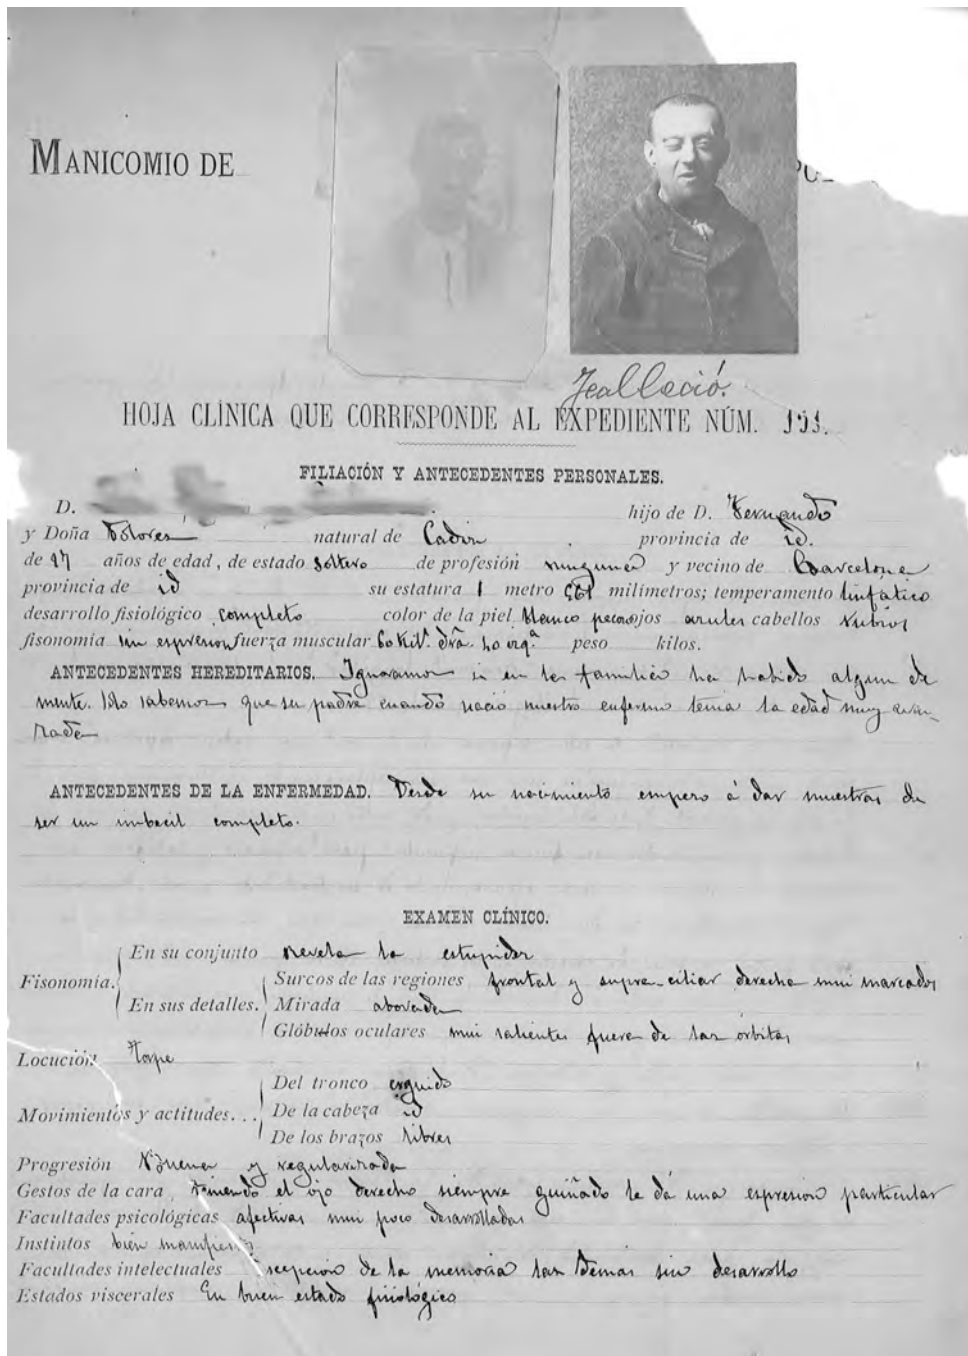 MANICOMIO DE
Fealleció.
HOJA CLÍNICA QUE CORRESPONDE AL EXPEDIENTE NÚM. 151.
FILIACIÓN Y ANTECEDENTES PERSONALES.
D. hijo de D. Fernando
y Doña Dolores natural de Cadiz . provincia de id.
de años de edad, de estado soltero de profesión ninguna y vecino de Barcelona
provincia de id su estatura 1 metro 561 milímetros; temperamento linfático
desarrollo fisiológico completo color de la piel blanco pecoso ojos azules cabellos rubios
fisonomía sin espresion fuerza muscular 60 kil. dra. 40 izq.ª peso kilos.
ANTECEDENTES HEREDITARIOS. Ignoramos si en la familia ha habido algun de
mente. Solo sabemos que su padre cuando nació nuestro enfermo tenia la edad muy avan-
zada
ANTECEDENTES DE LA ENFERMEDAD. Desde su nacimiento empezo á dar muestras de
ser un imbecil completo.
EXAMEN CLÍNICO.
Fisonomía. En su conjunto revela la estupidez
En sus detalles. Surcos de las regiones frontal y supra-ciliar derecha mui marcados
Mirada
Glóbulos oculares mui salientes fuera de las órbitas
Locución Torpe
Movimientos y actitudes... Del tronco erguido
De la cabeza id
De los brazos libres
Progresión Buena y regularizada
Gestos de la cara teniendo el ojo derecho siempre guiñado le dá una espresion particular
Facultades psicológicas afectivas mui poco desarrolladas
Instintos bien manifiestos
Facultades intelectuales escepcion de la memoria las demas sin desarrollo
Estados viscerales En buen estado fisiológico